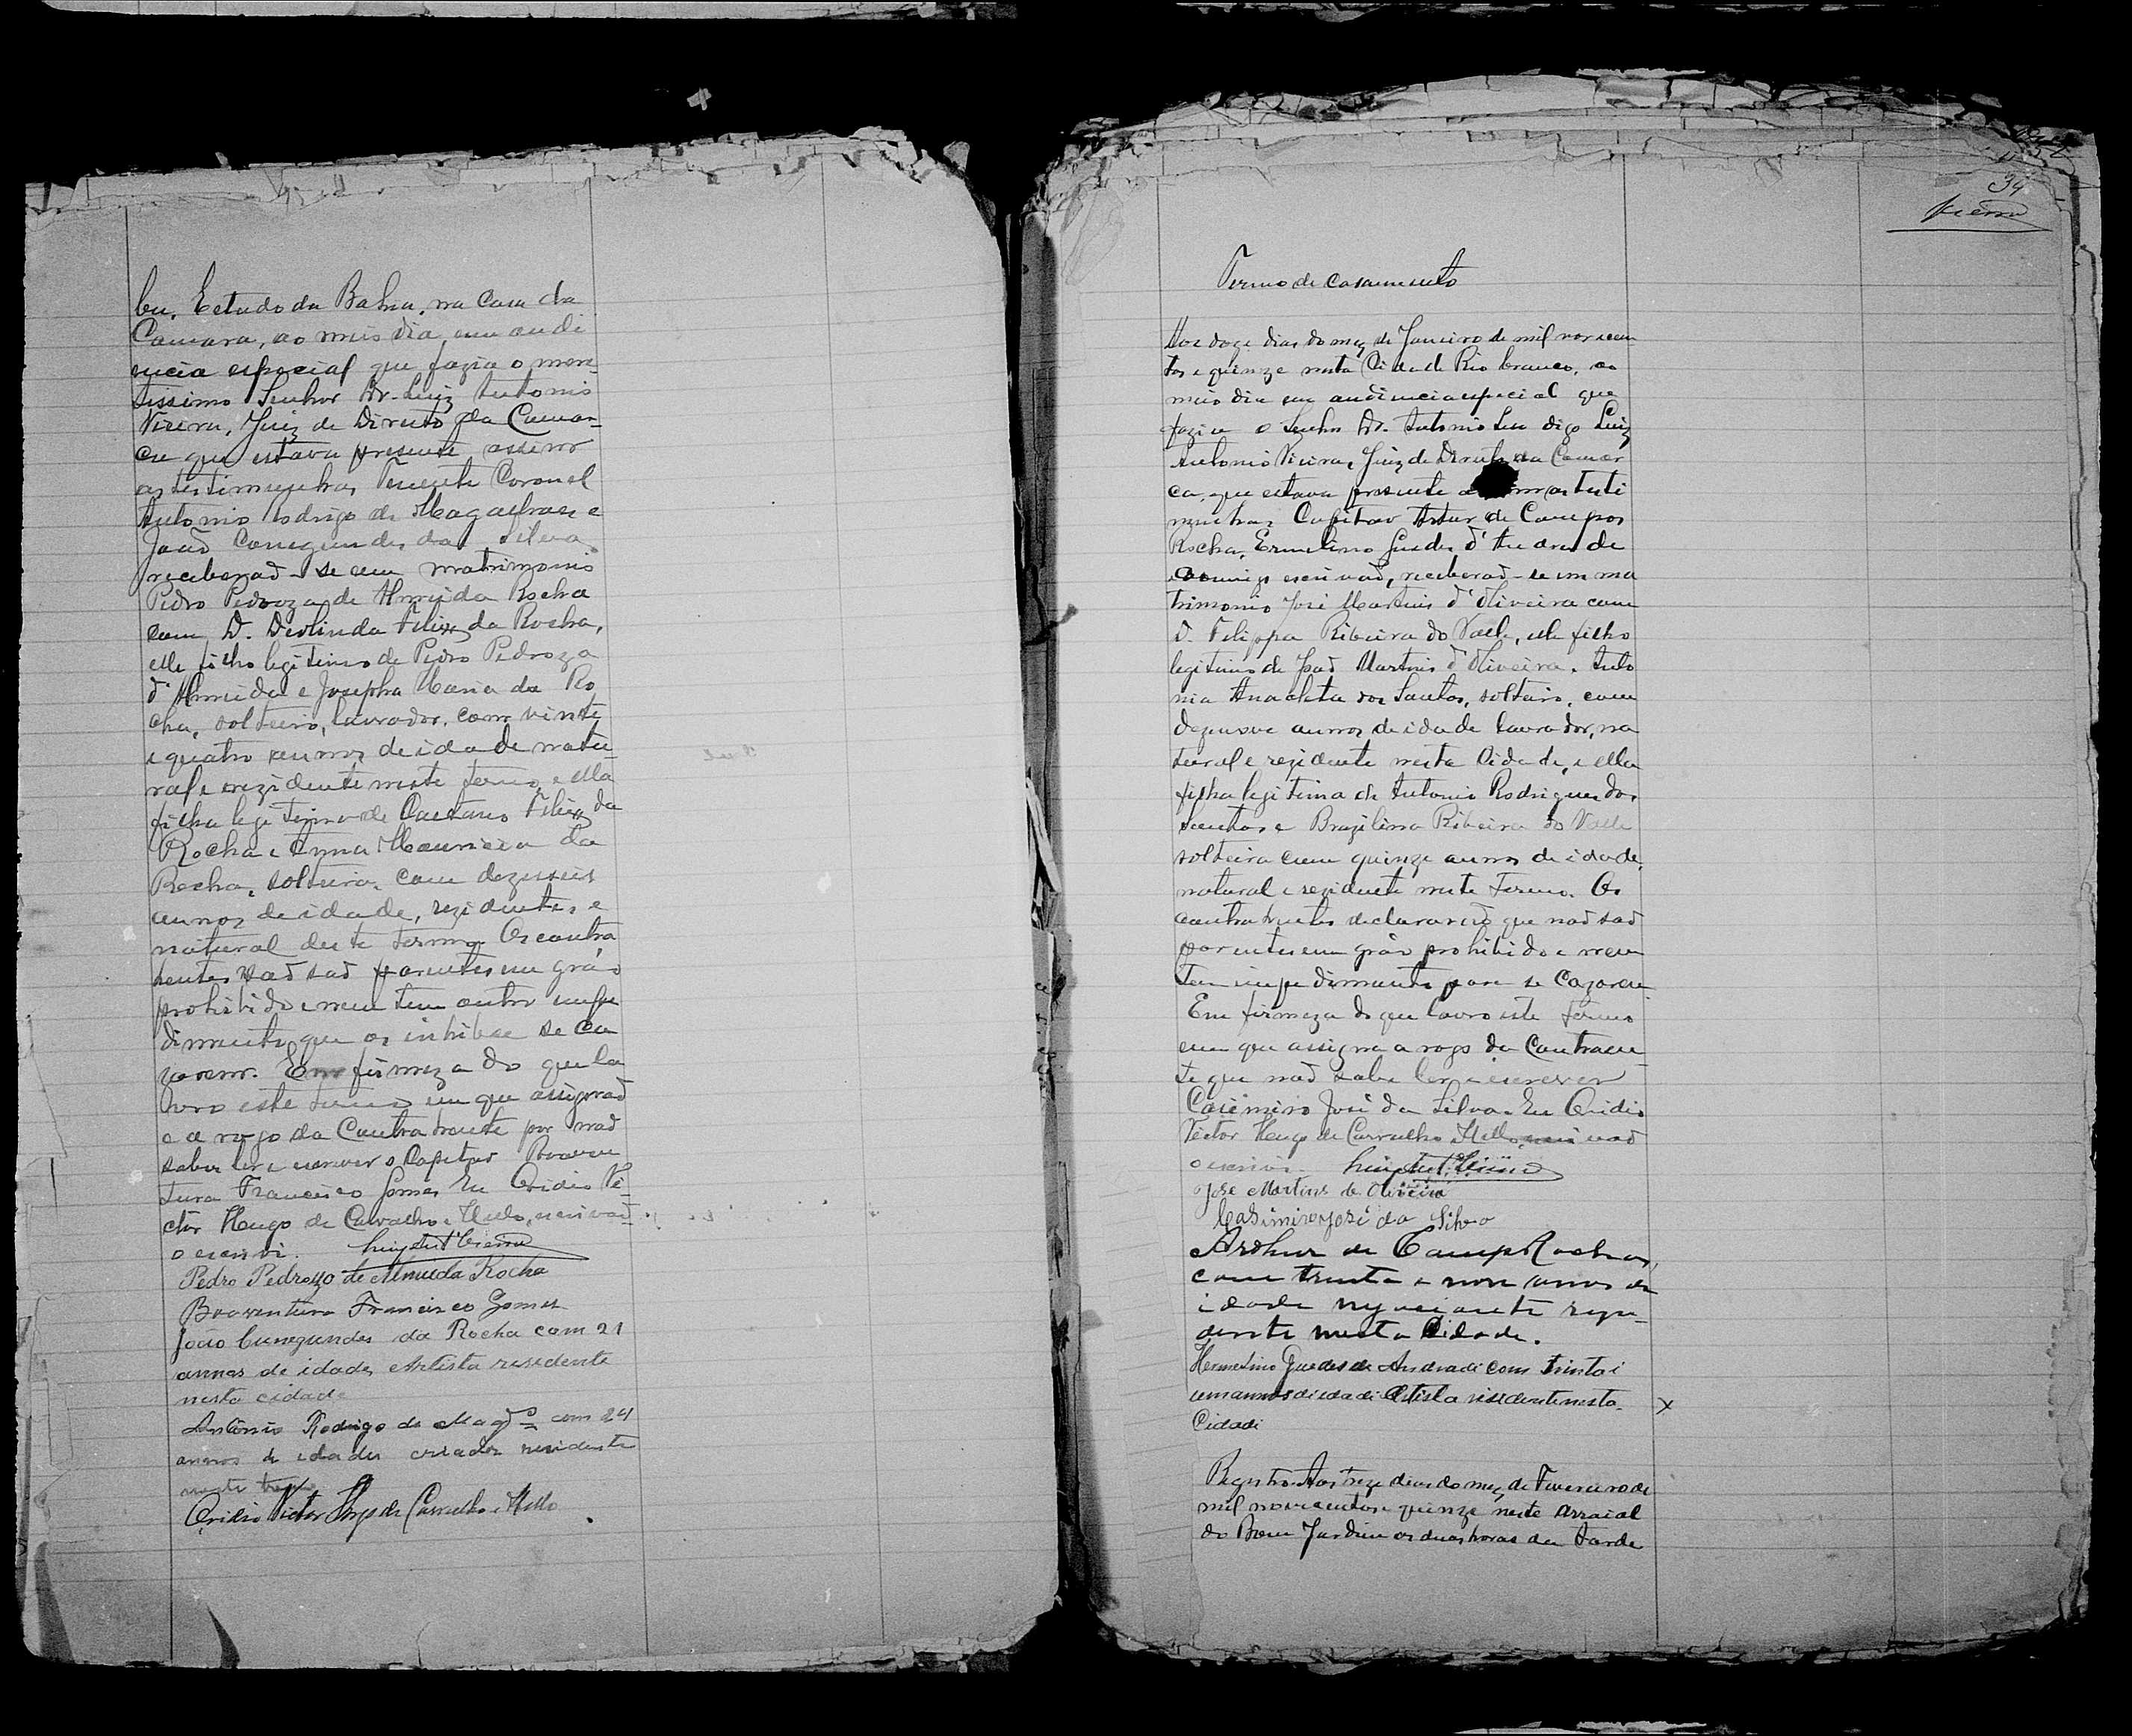 bu, Estado da Bahia, na Casa da
Camara, ao meio dia, em audi
encia especial que fazia o meri
tissimo Senhor Dr. Luiz Antonio
Vieira, Juiz de Direito da Comar-
ca que estava presente assim
as testimunhas Tenente Coronel
Antonio Rodrigo de Magalhaes e
João Conegundes da Silva
receberaõ-se em matrimonio
Pedro Pedroza de Almeida Rocha
com D. Deolinda Felix da Rocha,
elle filho legitimo de Pedro Pedroza
d'Almeida e Josepha Maria da Ro
cha, solteiro, lavrador, com vinte
e quatro annos de idade natu-
ral e rezidente neste termo, e ella
filha legitima de Caetano Felix da
Rocha e Anna Mauricia da
Rocha, solteira, com dezesseis
annos de idade, rezidente, e
natural deste termo. Os contra
hentes naõ saõ parentes em gráo
prohibido e nem tem outro impe
dimento que os inhibe de se ca
zarem. Em firmeza do que la
vro este termo em que assignaõ
e a rogo da Contrahente por naõ
saber ler e escrever o Capitaõ Boaven
tura Francisco Gomes Eu Ovidio Vi-
ctor Hugo de Carvalho e Mello, escrivaõ
o escrevi. Luiz Ant. Vieira
Pedro Pedrozo de Almeida Rocha
Boaventura Francisco Gomes
João Cunegundes da Rocha com 21
annos de idade, Artista residente
nesta cidade
Antônio Rodrigo de Mag.es com 24
annos de idades criador residente
neste termo
Ovidio Victor Hugo de Carvalho e Mello
34
Vieira
Termo de casamento
Aos doze dias do mez de Janeiro de mil novecen
tos e quinze nesta Cidade Rio branco, ao
meio dia em audiencia especial que
fazia o Senhor Dr. Antonio Lui digo Luiz
Antonio Vieira, Juiz de Direito da Comar
ca, que estava presente as testi
munhas Capitaõ Artur de Campos
Rocha, Ermelino Guedes d'Andrade
comigo escrivaõ, receberaõ-se em ma
trimonio José Martins d'Oliveira com
D. Filippa Ribeira do Valle, elle filho
legitimo de Joaõ Martins d'Oliveira. Anto
nia Anacleta dos Santos, solteiro, com
dezenove annos de idade lavrador, na
tural e rezidente nesta Cidade, e ella
filha legitima de Antonio Rodrigues dos
Santos e Brazilina Ribeira do Valle
solteira com quinze annos de idade,
natural e rezidente neste termo. Os
contrahentes declararaõ que naõ saõ
parentes em gráo prohibido e nem
tem impedimento para se cazarem.
Em firmeza do que lavro este termo
em que assigna a rogo da Contrahen
te que naõ sabe ler e escrever
Casemiro José da Silva. Eu Ovidio
Victor Hugo de Carvalho Mello escrivaõ
o escrivi. Luiz Ant. Vieira
José Martins de Oliveira
Casimiro José da Silva
Arthur de Camp Rocha,
com trinta e nove annos de
idade negociante rezi-
dente nesta Cidade.
Hermelino Guedes de Andrade com trinta i
um annos di idadi Artista risidente nesta
Cidadi
x
Registro Aos treze dias do mez de Fevereiro de
mil novecentos e quinze neste Arraial
do Bom Jardim as duas horas da tarde